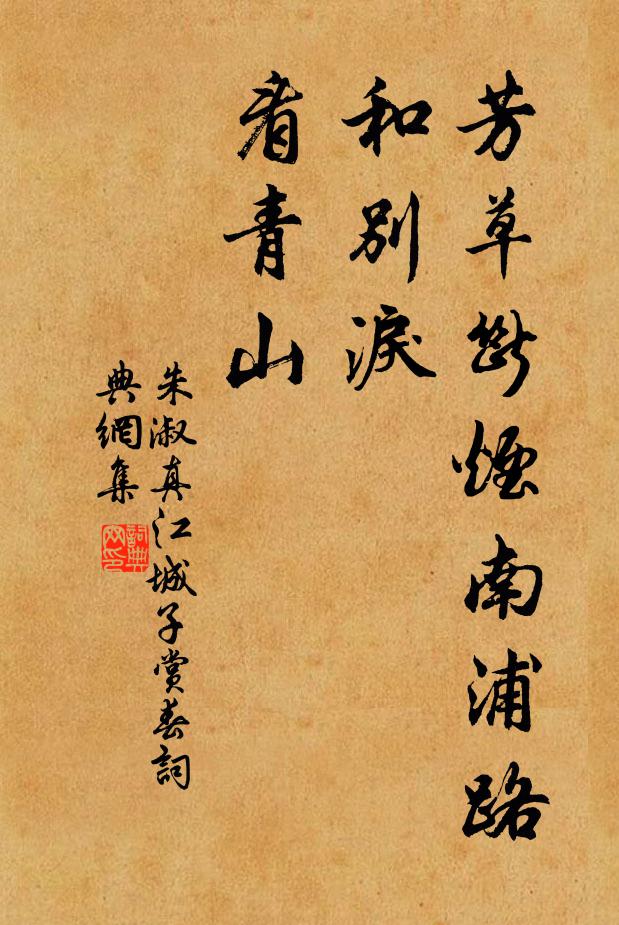 芳草斷煙南浦路
和別淚
看青山
朱淑真江城子賞春詞
典網集
詞典
网印